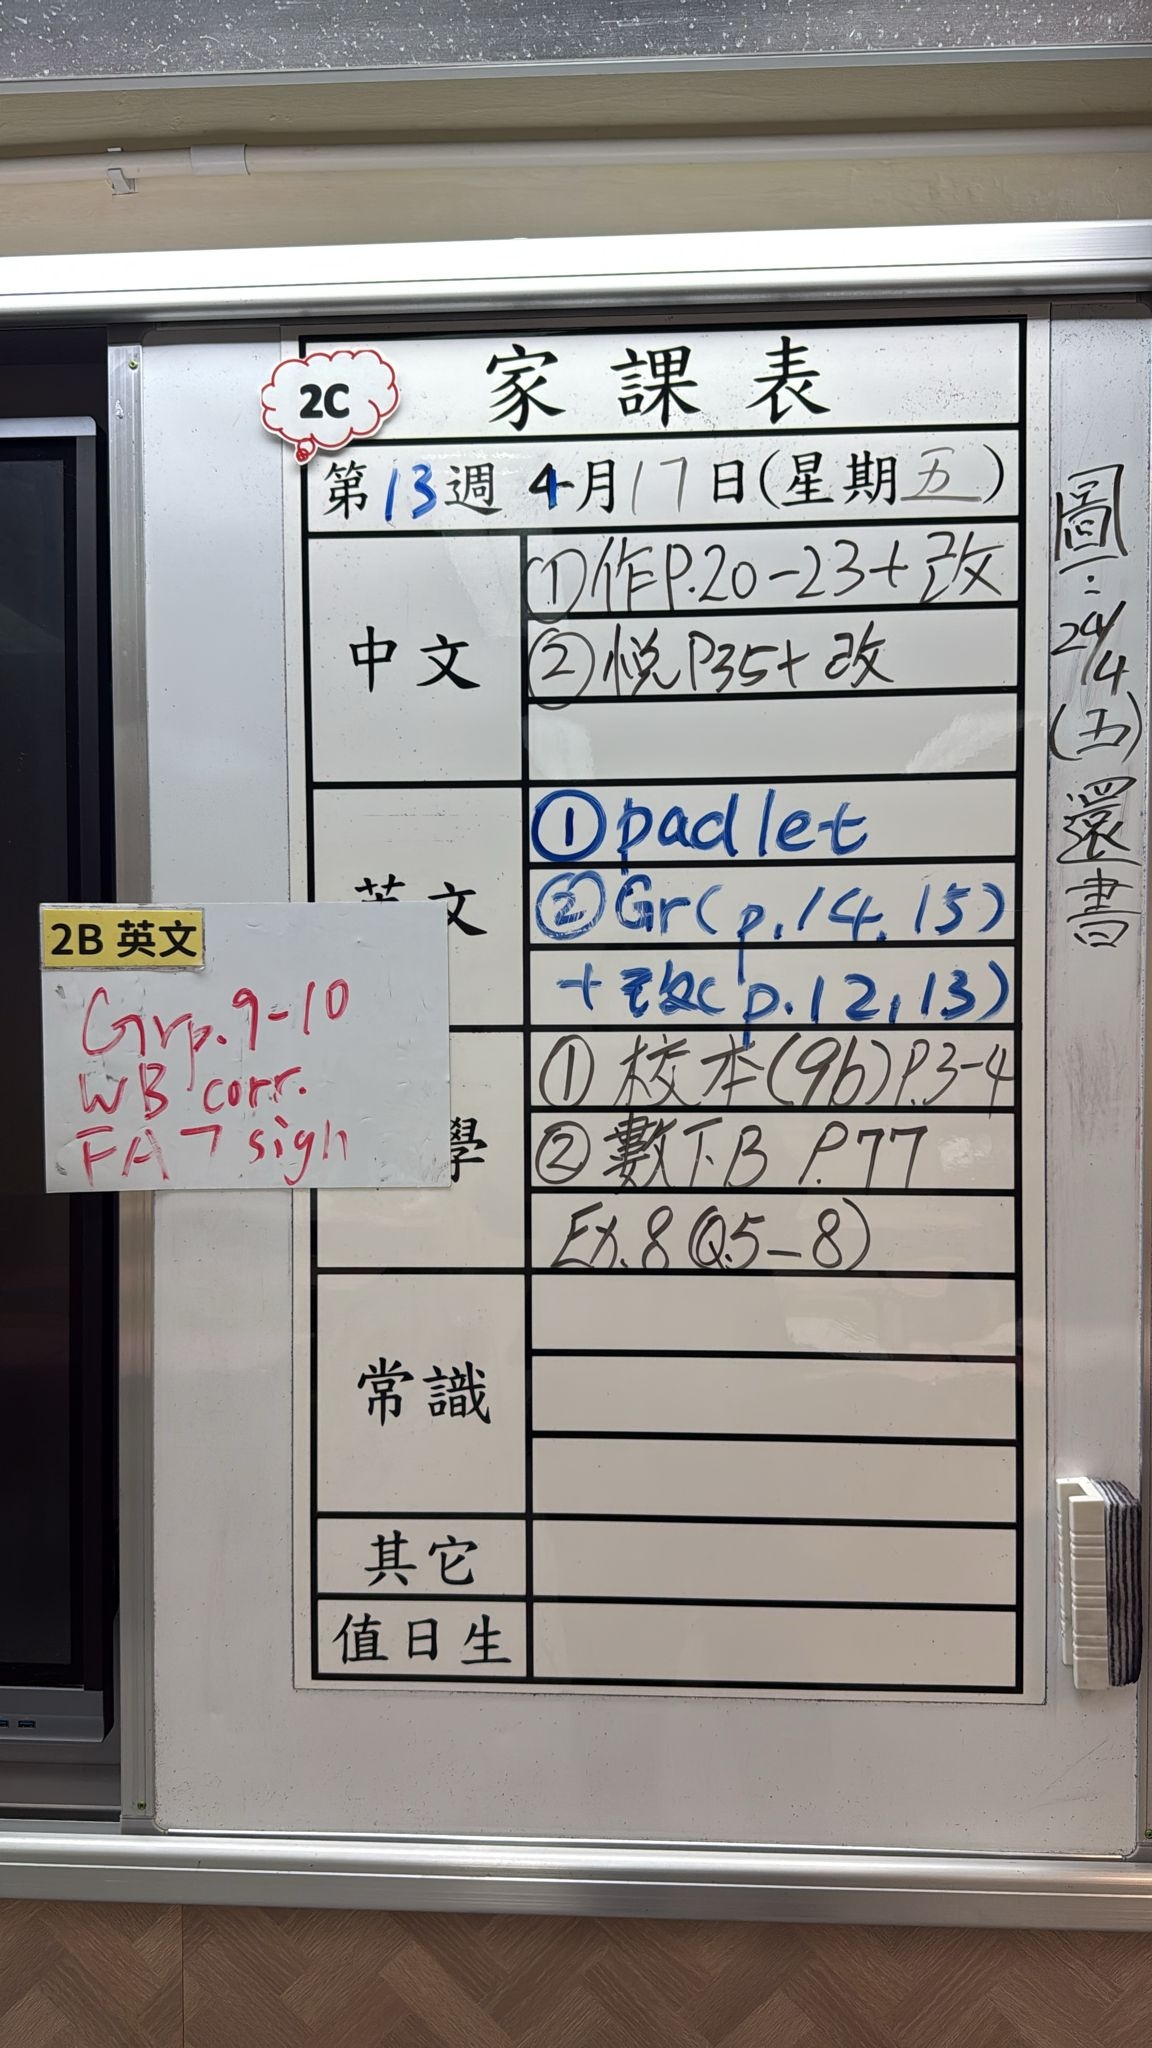 2C
家課表
第13週 4月17日(星期五)
中文
①作P.20-23+改
②悅P35+改
英文
①padlet
②Gr(p.14,15)
+改(p.12,13)
學
①校本(9b)P.3-4
②數下B P.77
Ex.8(Q.5-8)
常識
其它
值日生
2B 英文
Gr p.9-10
WB corr.
FA7 sign
圖:24/4(五)還書